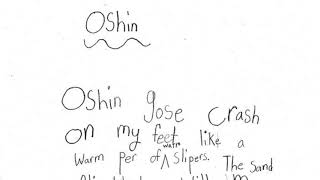 Oshin
Oshin gose crash
on my feet like a
watre
warm per of ^ Slipers. The Sand